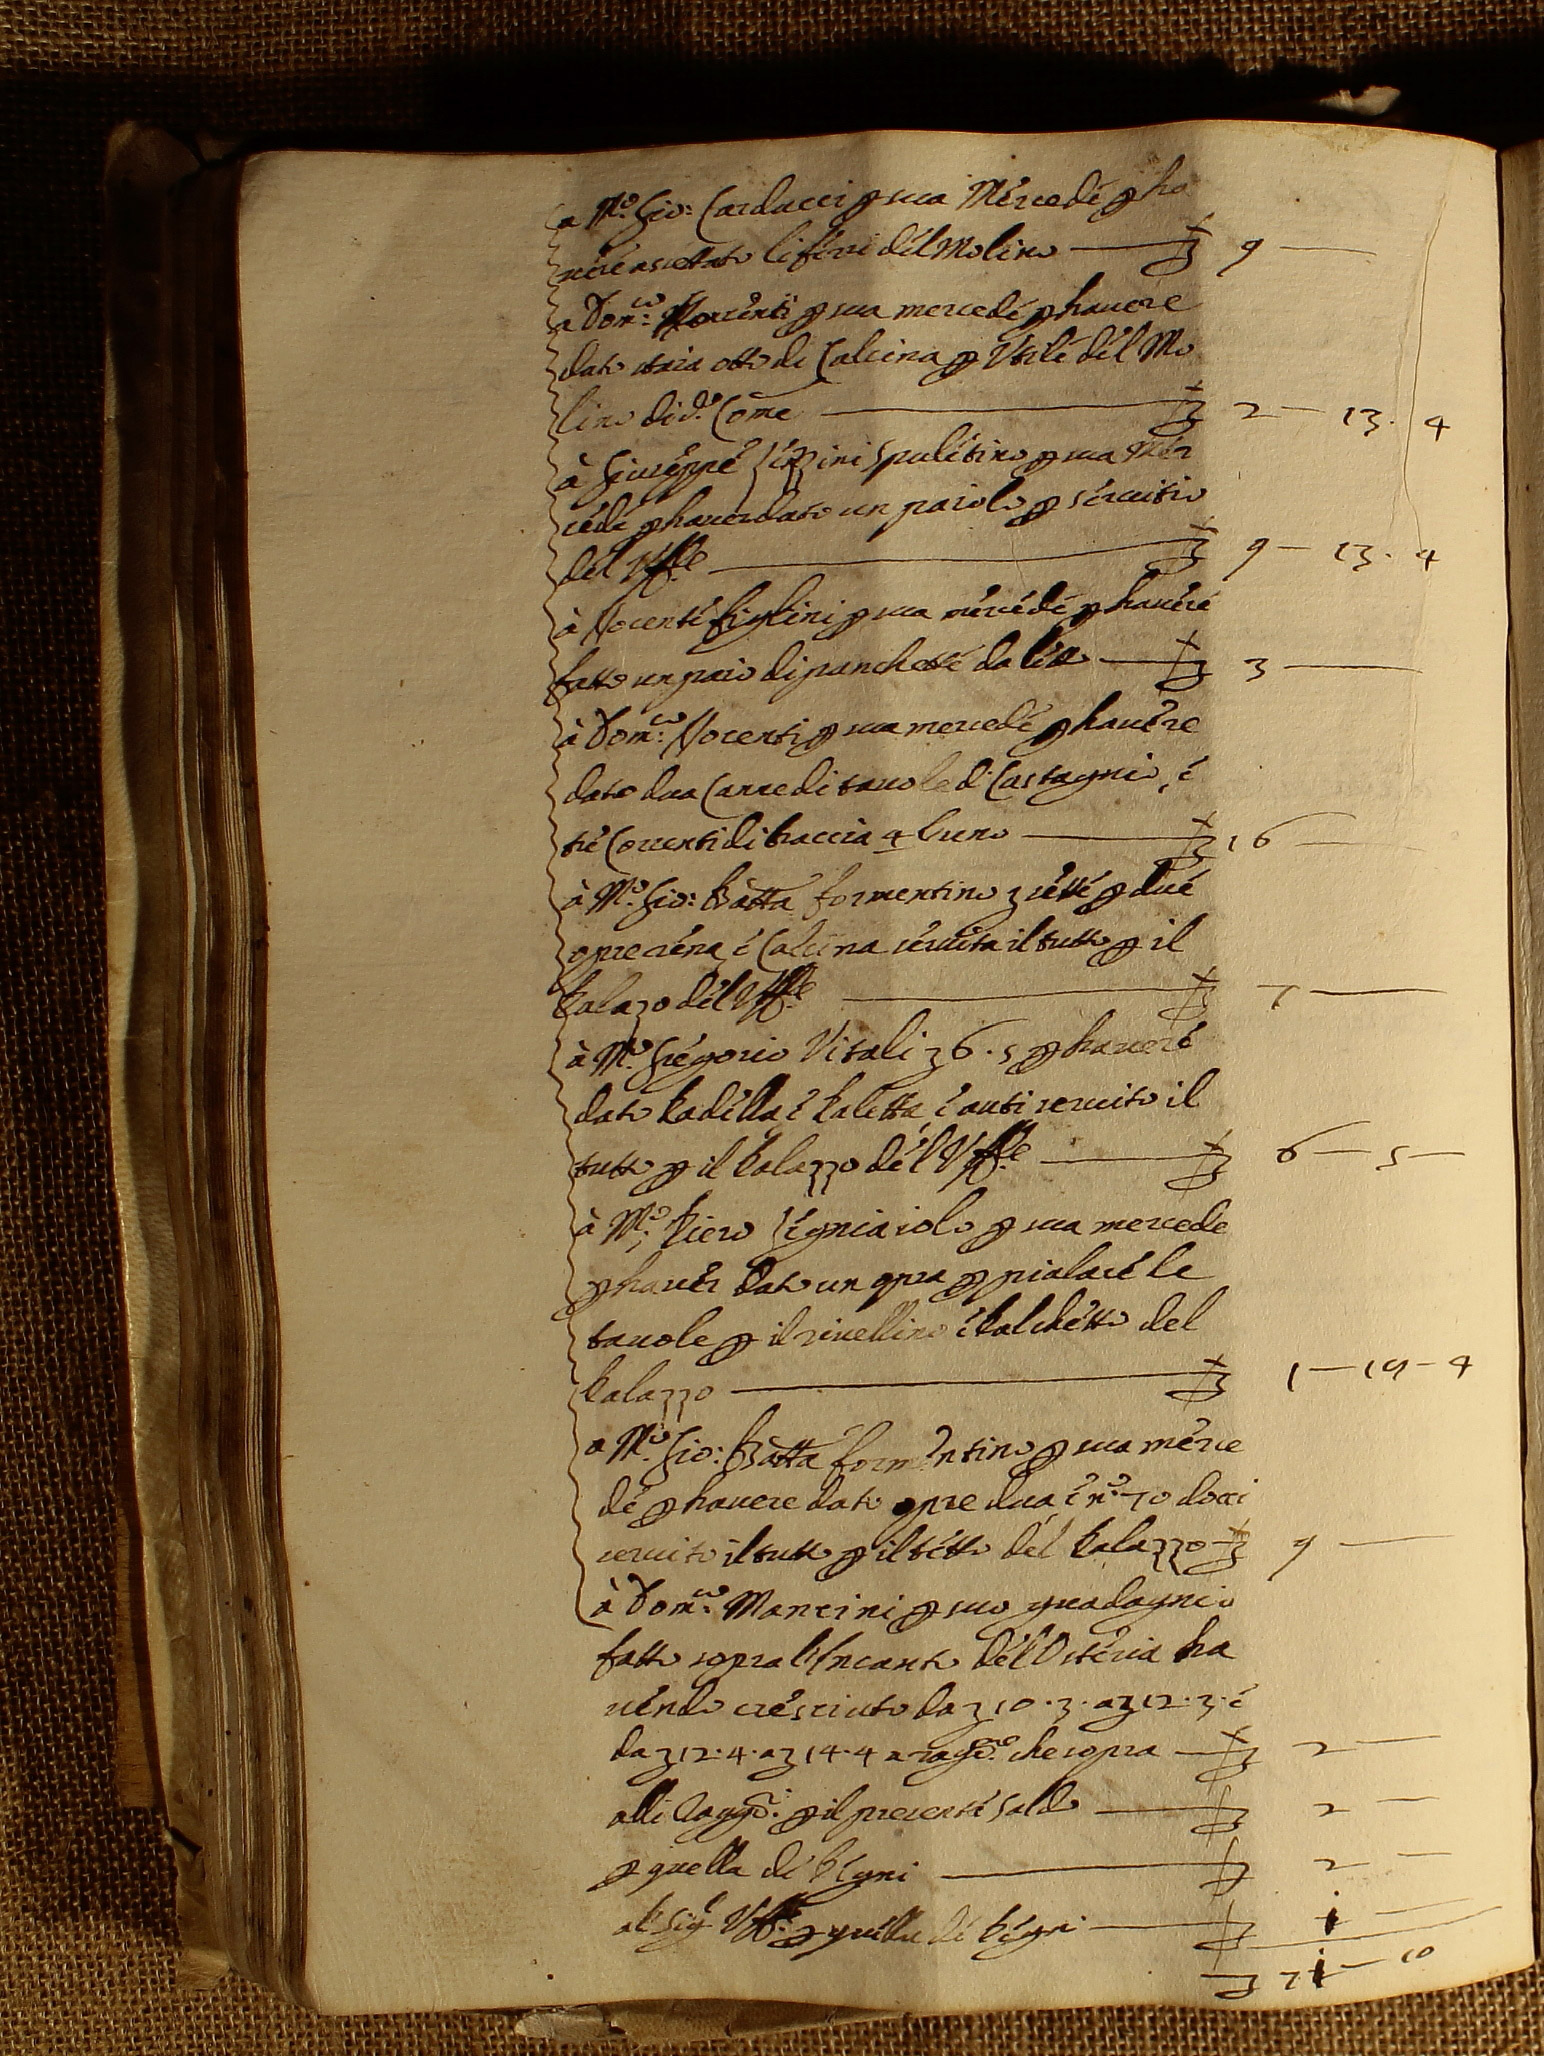 a M.o Gio: Carducci p sua Mercede p ha
vere assettato li ferri del Molino — £ 9 —
a Dom.co Nocenti p sua mercede p havere
dato staia otto di Calcina p Utile del Mo
lino di d.o Com̃e — £ 2 — 13. 4
à Giuseppe Spuletino p sua Mer
cede p haver dato un paiolo p servitio
del Uff.le — £ 9 — 13. 4
à Nocente figlini p sua mercede p havere
fatto un paio di panchette da letto — £ 3 —
à Dom.co Nocenti p sua mercede p havere
dato dua Canne di tavole di Castagnio, e
tre Correnti di braccia 4 l'uno — £ 16 —
à M.o Gio: Batta formentino £ sette p due
opre rena, e Calcina servita il tutto p il
Palazo del Uff.le — £ 7 —
à M.o Gregorio Vitali £ 6. 5 p havere
dato Padella e Paletta, e auti servito il
tutto p il Palazzo del Uff.le — £ 6 — 5 —
à M.o Piero Legniaiolo p sua mercede
p haver dato un opra p pialare le
tavole p il rivellino e Palchetto del
Palazzo — £ 1 — 19 — 4
a M.o Gio: Batta formentino p sua merce
de p havere dato opre dua e n.o 70 docci
servito il tutto p il tetto del Palazzo — £ 9 —
à Dom.co Mancini p suo guadagnio
fatto sopra l'Incanto del Osteria ha
vendo cresciuto da £ 10. 3. a £ 12. 3. e
da £ 12. 4. a £ 14. 4 a rag.ne che sopra — £ 2 —
alli Ragg.ri p il presente saldo — £ 2 —
p quella di Pegni — £ 2 —
al Sig.r Uff.le p quella di Pegni — £ 1 —
£ 71 — 10